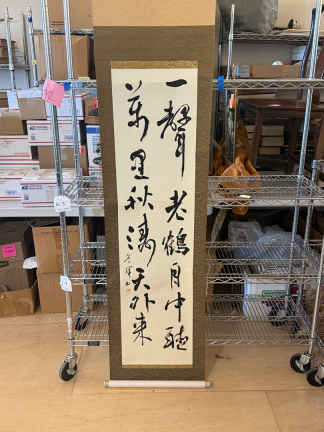 一聲老鶴月中聴
萬里秋濤天外来